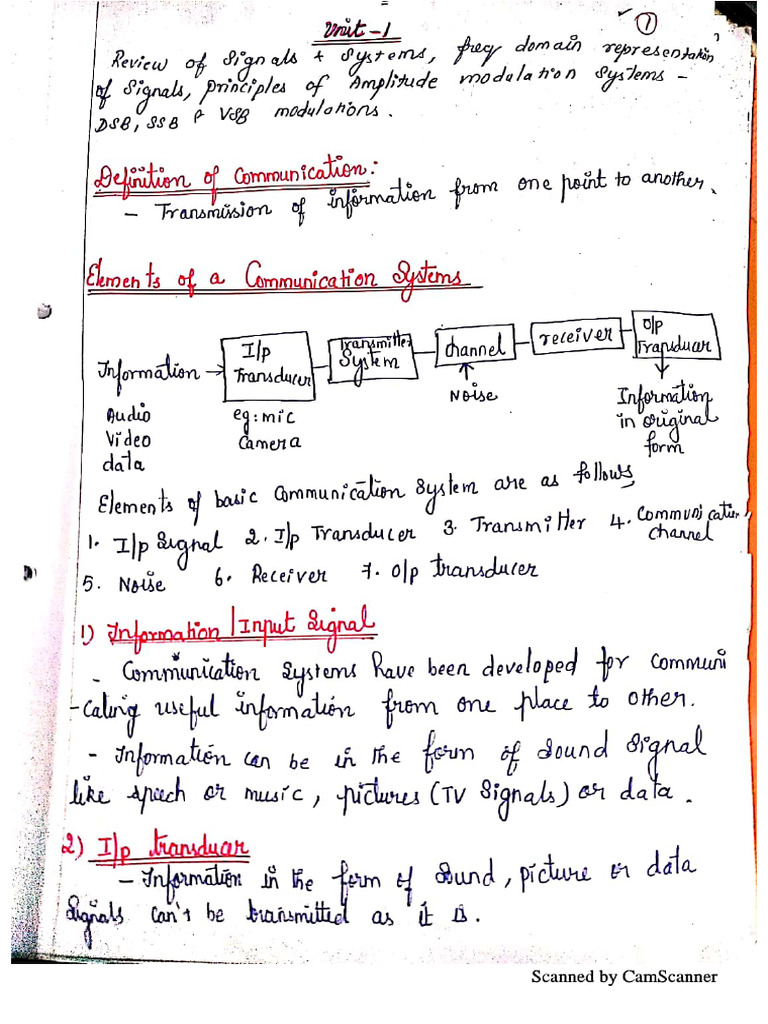 Unit-1
1
Review of Signals + Systems, freq domain representation
of Signals, principles of Amplitude modulation Systems -
DSB, SSB & VSB modulations.
Definition of Communication:
- Transmission of information from one point to another.
Elements of a Communication Systems
Information → I/p Transducer
Transmitter System
channel
receiver
O/p Tranducar
Noise
Information in original form
Audio
Video
data
eg: mic
Camera
Elements of basic Communication System are as follows
1. I/p Signal 2. I/p Transducer 3. Transmitter 4. Communication channel
5. Noise 6. Receiver 7. o/p transducer
1) Information/Input Signal
- Communication Systems have been developed for communi
-cating useful information from one place to other.
- Information can be in the form of Sound Signal
like speech or music, pictures (TV Signals) or data.
2) I/p transducar
- Information in the form of Sound, picture or data
Signals can't be transmitted as it is.
Scanned by CamScanner